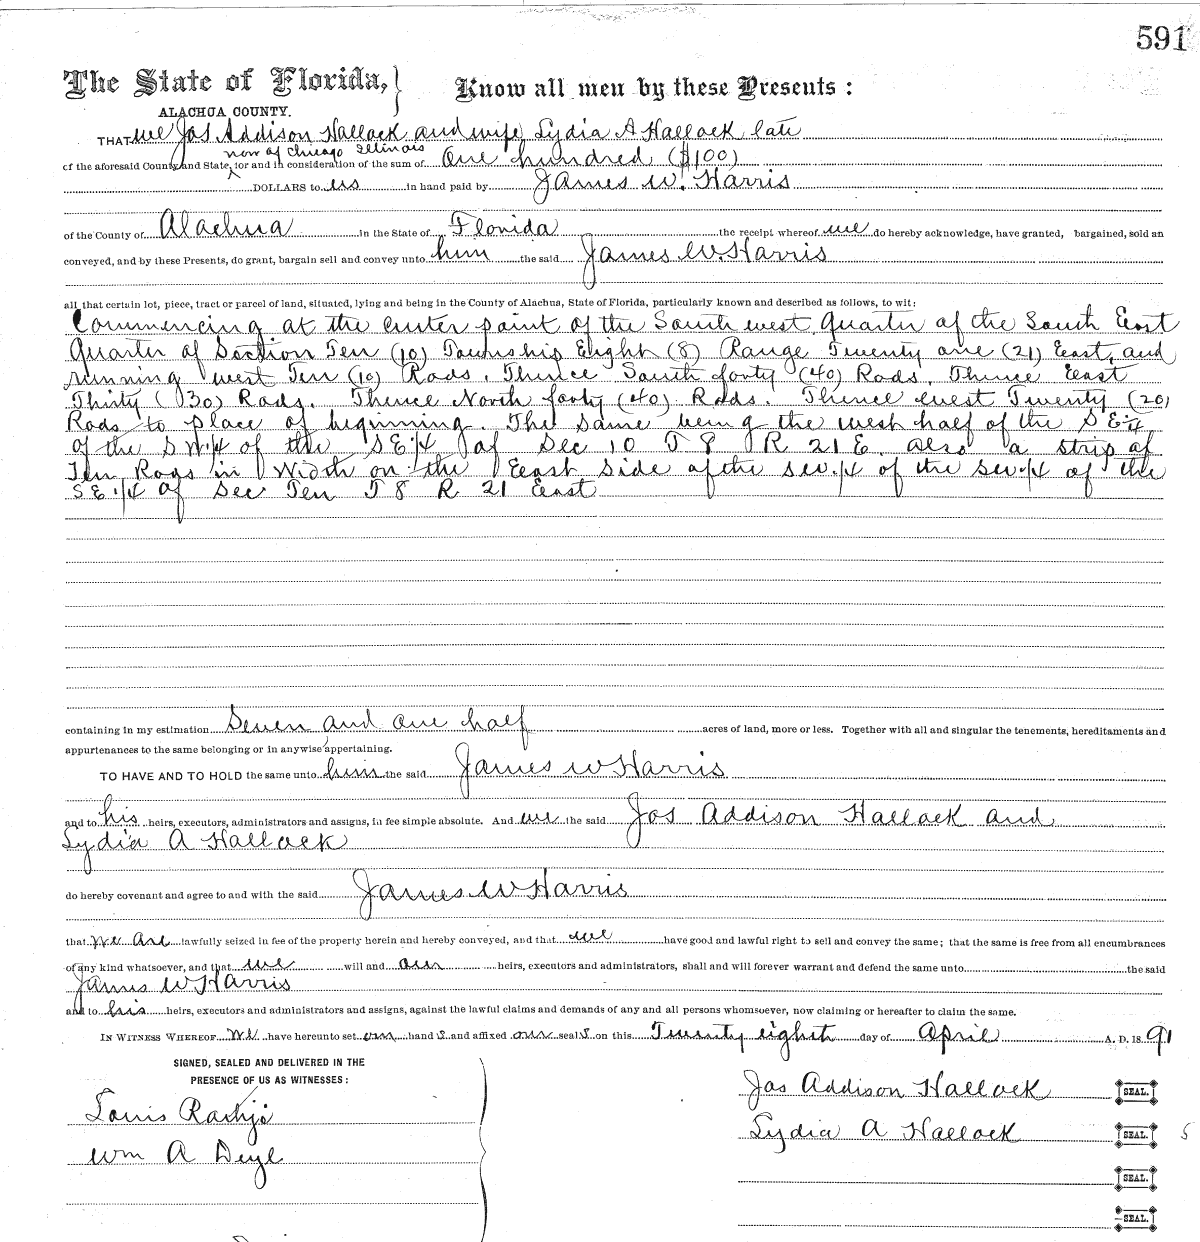 591
The State of Florida, } Know all men by these Presents :
ALACHUA COUNTY.
THAT we Jas Addison Hallock and wife Lydia A Hallock late
now of Chicago Illinois
of the aforesaid County and State, for and in consideration of the sum of One hundred ($100)
DOLLARS to us in hand paid by James W. Harris
of the County of Alachua in the State of Florida the receipt whereof we do hereby acknowledge, have granted, bargained, sold an
conveyed, and by these Presents, do grant, bargain sell and convey unto him the said James W. Harris
all that certain lot, piece, tract or parcel of land, situated, lying and being in the County of Alachua, State of Florida, particularly known and described as follows, to wit:
Commencing at the center point of the South west Quarter of the South East
Quarter of Section Ten (10) Township Eight (8) Range Twenty one (21) East, and
running west Ten (10) Rods. Thence South forty (40) Rods. Thence East
Thirty (30) Rods. Thence North forty (40) Rods. Thence west Twenty (20)
Rods to place of beginning. The same being the west half of the S E 1/4
of the S W 1/4 of the S E 1/4 of Sec 10 T 8 R 21 E. also a strip of
Ten Rods in Width on the East side of the SW 1/4 of the SW 1/4 of the
S E 1/4 of Sec Ten T 8 R 21 East
containing in my estimation Seven and one half acres of land, more or less. Together with all and singular the tenements, hereditaments and
appurtenances to the same belonging or in anywise appertaining.
TO HAVE AND TO HOLD the same unto him the said James W Harris
and to his heirs, executors, administrators and assigns, in fee simple absolute. And we the said Jas Addison Hallock and
Lydia A Hallock
do hereby covenant and agree to and with the said James W Harris
that we are lawfully seized in fee of the property herein and hereby conveyed, and that we have good and lawful right to sell and convey the same; that the same is free from all encumbrances
of any kind whatsoever, and that we will and our heirs, executors and administrators, shall and will forever warrant and defend the same unto the said
James W Harris
and to his heirs, executors and administrators and assigns, against the lawful claims and demands of any and all persons whomsoever, now claiming or hereafter to claim the same.
IN WITNESS WHEREOF We have hereunto set our hand s and affixed our seal s on this Twenty eighth day of April A. D. 18 91
SIGNED, SEALED AND DELIVERED IN THE
PRESENCE OF US AS WITNESSES :
Jas Addison Hallock SEAL.
Louis
Lydia A Hallock SEAL.
Wm A
SEAL.
SEAL.